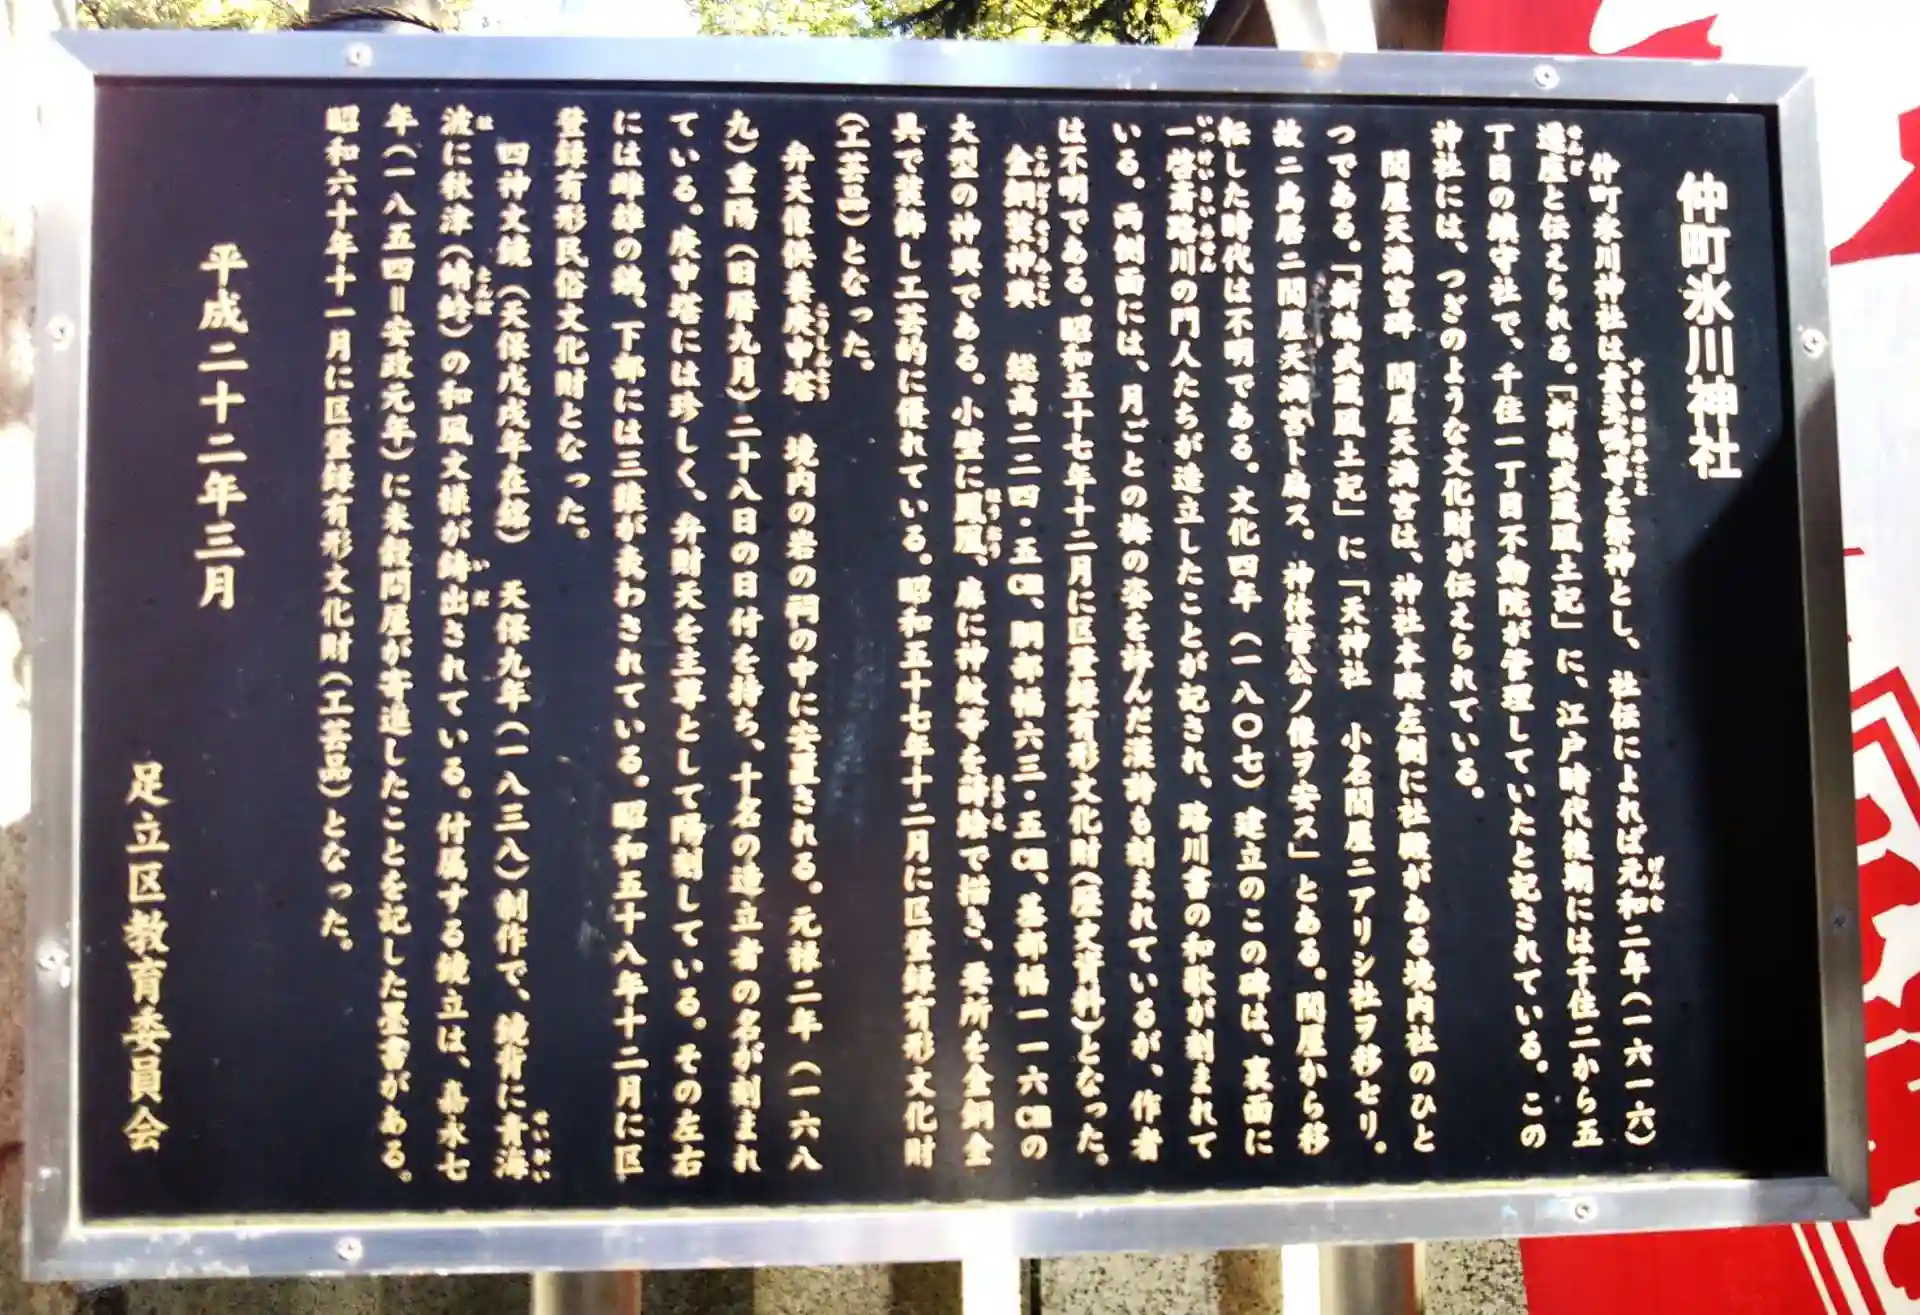 仲町氷川神社
仲町氷川神社は素盞嗚尊を祭神とし、社伝によれば元和二年(一六一六)
造座と伝えられる。「新編武蔵風土記」に、江戸時代後期には千住二から五
丁目の鎮守社で、千住一丁目不動院が管理していたと記されている。この
神社には、つぎのような文化財が伝えられている。
関屋天満宮碑 関屋天満宮は、神社本殿左側に社殿がある境内社のひと
つである。「新編武蔵風土記」に「天神社 小名関屋ニアリシ社ヲ移セリ。
故ニ鳥居ニ関屋天満宮ト扁ス。神体菅公ノ像ヲ安ス」とある。関屋から移
転した時代は不明である。文化四年(一八〇七)建立のこの碑は、裏面に
一啓斎路川の門人たちが造立したことが記され、路川書の和歌が刻まれて
いる。両側面には、月ごとの梅の姿を詠んだ漢詩も刻まれているが、作者
は不明である。昭和五十七年十二月に区登録有形文化財(歴史資料)となった。
金銅装神輿 総高二二四・五㎝、胴部幅六三・五㎝、基部幅一一六㎝の
大型の神輿である。小壁に鳳凰、扉に神紋等を蒔絵で描き、要所を金銅金
具で装飾し工芸的に優れている。昭和五十七年十二月に区登録有形文化財
(工芸品)となった。
弁天像供養庚申塔 境内の岩の祠の中に安置される。元禄二年(一六八
九)重陽(旧暦九月)二十八日の日付を持ち、十名の造立者の名が刻まれ
ている。庚申塔には珍しく、弁財天を主尊として陽刻している。その左右
には雌雄の鶏、下部には三猿が表わされている。昭和五十八年十二月に区
登録有形民俗文化財となった。
四神文鏡(天保戊戌年在銘) 天保九年(一八三八)制作で、鏡背に青海
波に秋津(蜻蛉)の和風文様が鋳出されている。付属する鏡立は、嘉永七
年(一八五四=安政元年)に米穀問屋が寄進したことを記した墨書がある。
昭和六十年十一月に区登録有形文化財(工芸品)となった。
平成二十二年三月
足立区教育委員会